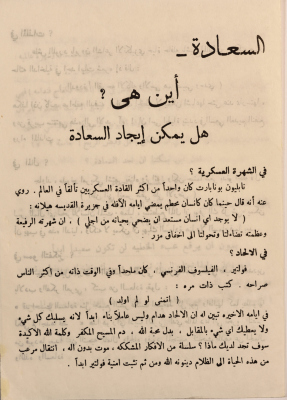 السعادة ـ
أين هى ؟
هل يمكن إيجاد السعادة
فى الشهرة العسكرية ؟
نابليون بونابارت كان واحداً من اكثر القادة العسكريين تألقاً في العالم . روي
عنه أنه قال حينما كان كانسان محطم يمضي ايامه الأخيره في جزيرة القديسه هيلانه :
( لا يوجد اي انسان مستعد ان يضحي بحياته من اجلي ) ، ان شهرته الرفيعة
وعظمته تضاءلتا وتحولتا الى اخفاق مرر
فى الالحاد ؟
فولتير ، الفيلسوف الفرنسي ، كان ملحداً وفي الوقت ذاته من اكثر الناس
صراحه . كتب ذات مره :
( اتمنى لو لم اولد )
في ايامه الاخيره تبين له ان الالحاد هدام وليس عاملاً بناء ابداً لانه يسلبك كل شيء
ولا يعطيك اي شيء بالمقابل . بدل محبة الله ، دم المسيح المكفر وكلمة الله الاكيدة
سوف تجد لديك ماذا ؟ سلسلة من الافكار المشككه ، موت بدون اله ، انتقال مرعب
من هذه الحياة الى الظلام دينونه الله ومن ثم تثبت امنية فولتير ابداً .